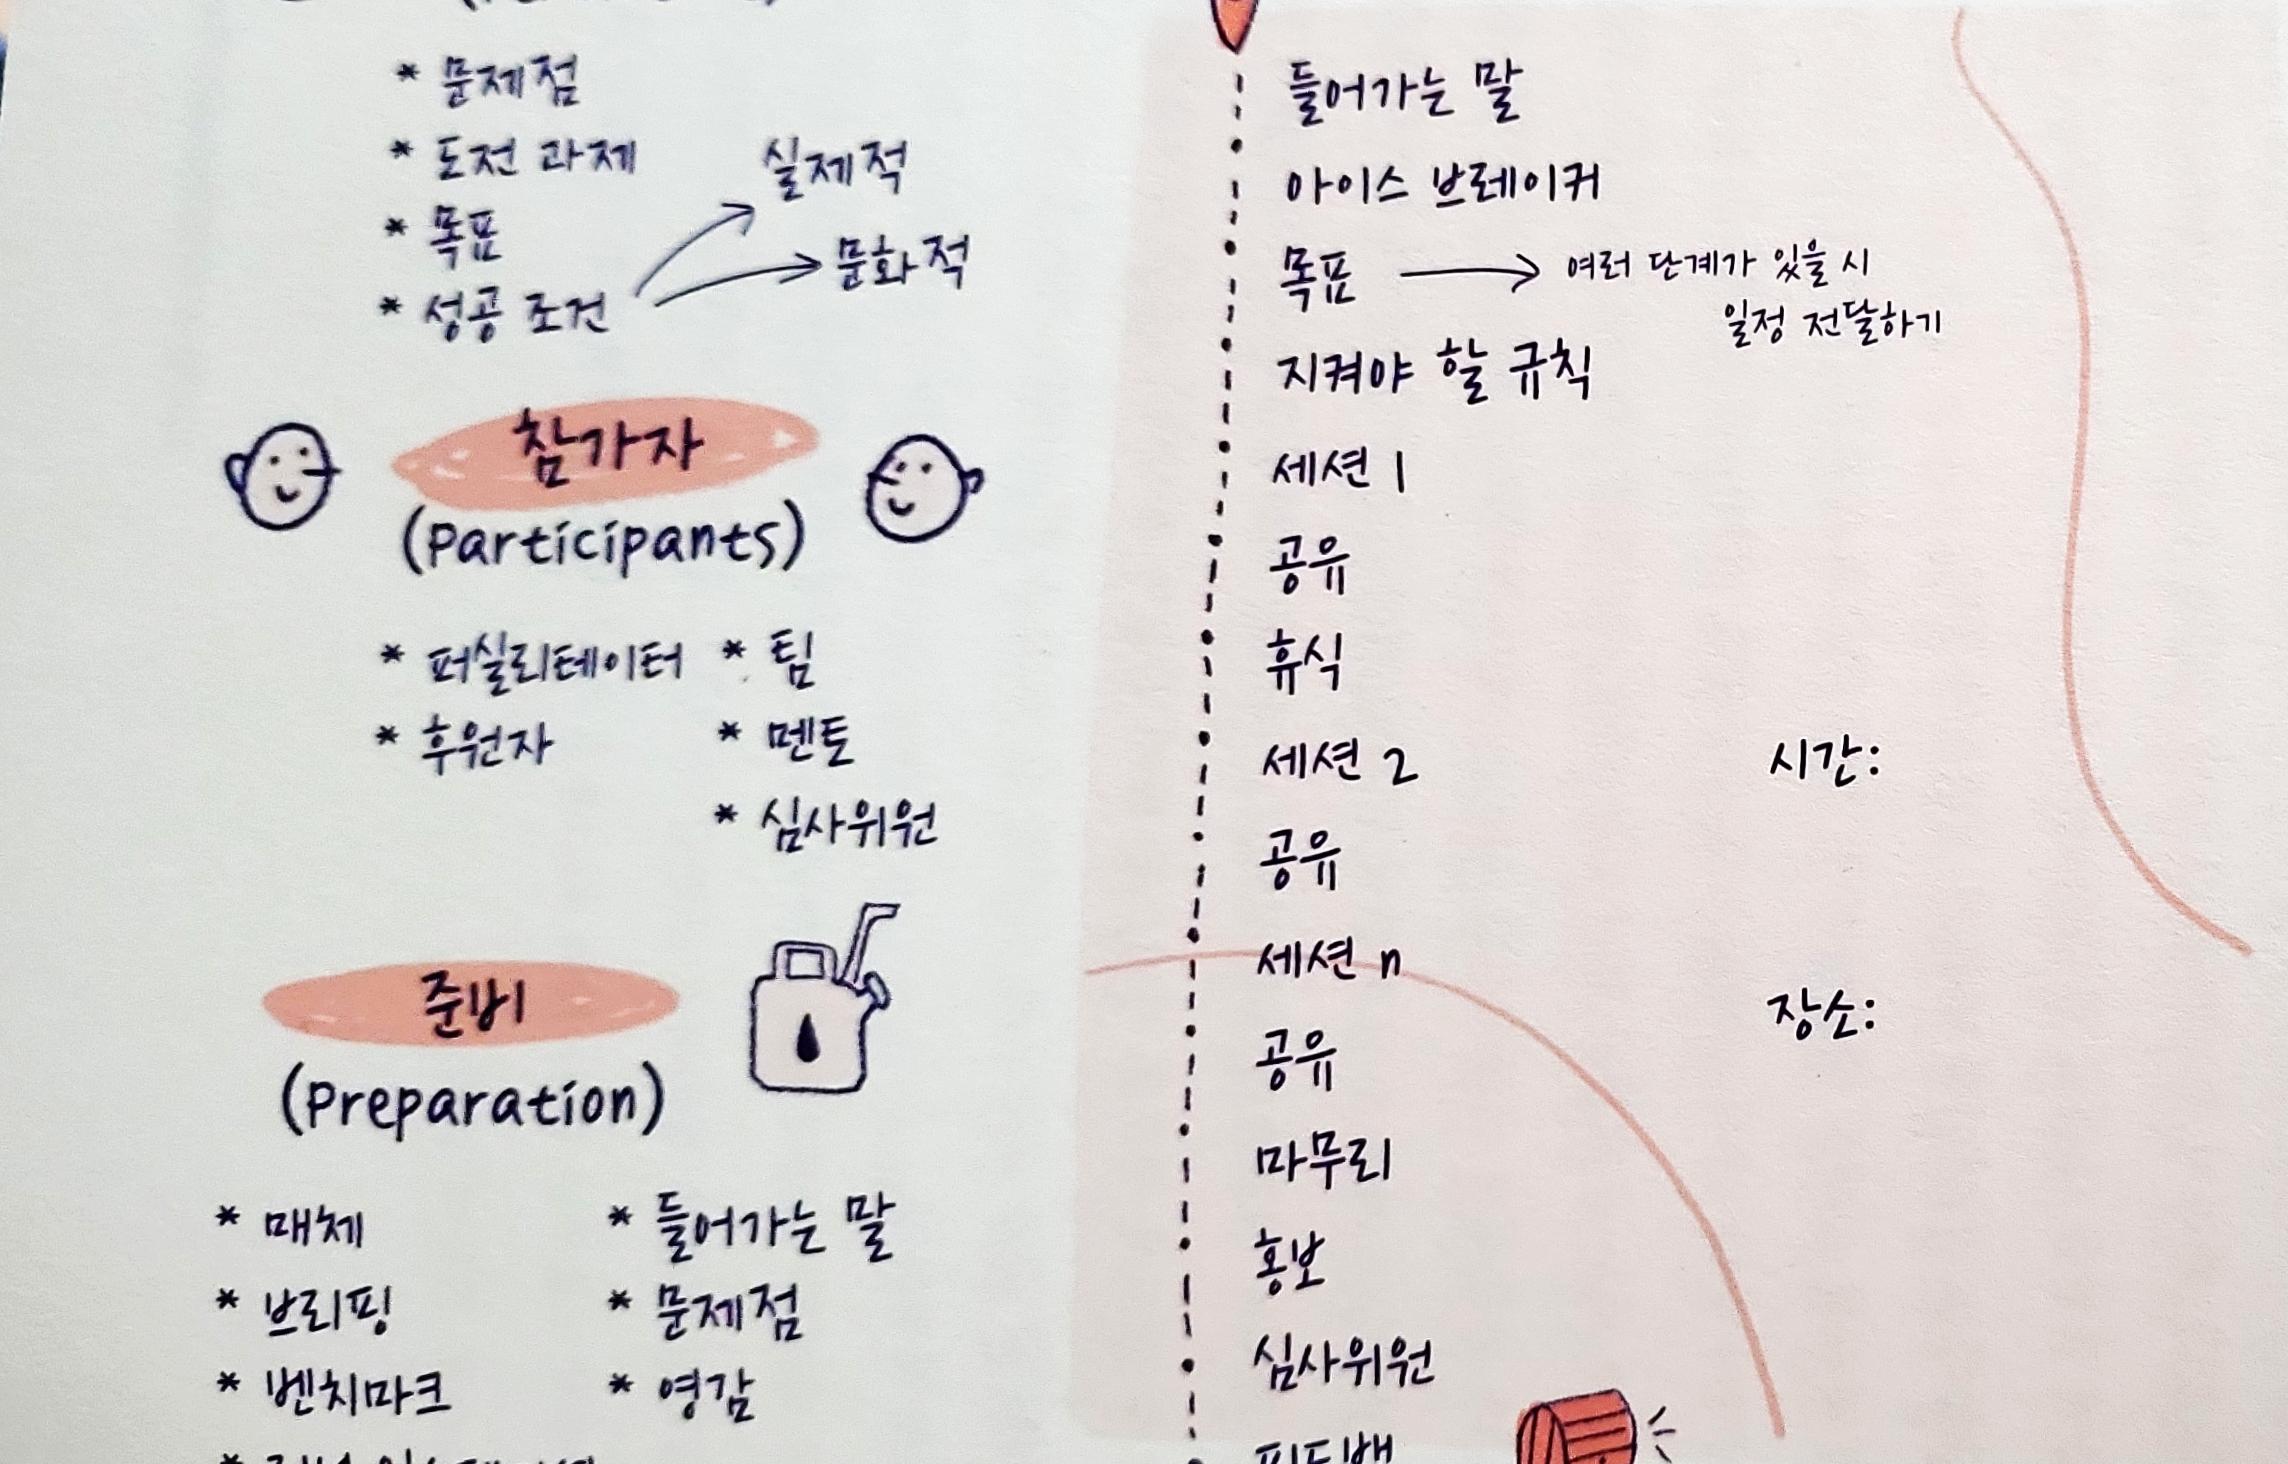 * 문제점
* 도전 과제
* 목표
* 성공 조건
실제적
문화적
참가자
(Participants)
* 퍼실리테이터
* 후원자
* 팀
* 멘토
* 심사위원
준비
(Preparation)
* 매체
* 브리핑
* 벤치마크
* 들어가는 말
* 문제점
* 영감
들어가는 말
아이스 브레이커
목표
여러 단계가 있을 시
일정 전달하기
지켜야 할 규칙
세션 1
공유
휴식
세션 2
공유
세션 n
공유
마무리
홍보
심사위원
피드백
시간:
장소: